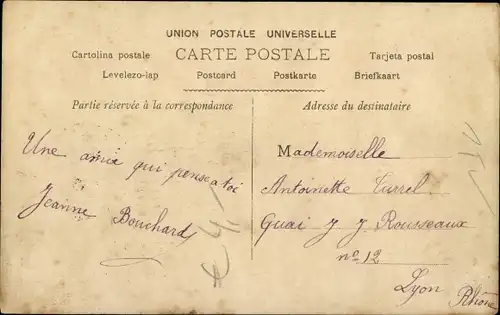 UNION POSTALE UNIVERSELLE
Cartolina postale CARTE POSTALE Tarjeta postal
Levelezo-lap Postcard Postkarte Briefkaart
Partie réservée à la correspondance
Adresse du destinataire
Une amie qui pense a toi
Jeanne Bouchard
€4,-
Mademoiselle
Antoinette Currel
Quai J J Rousseaux
nº 12
Lyon
Rhône